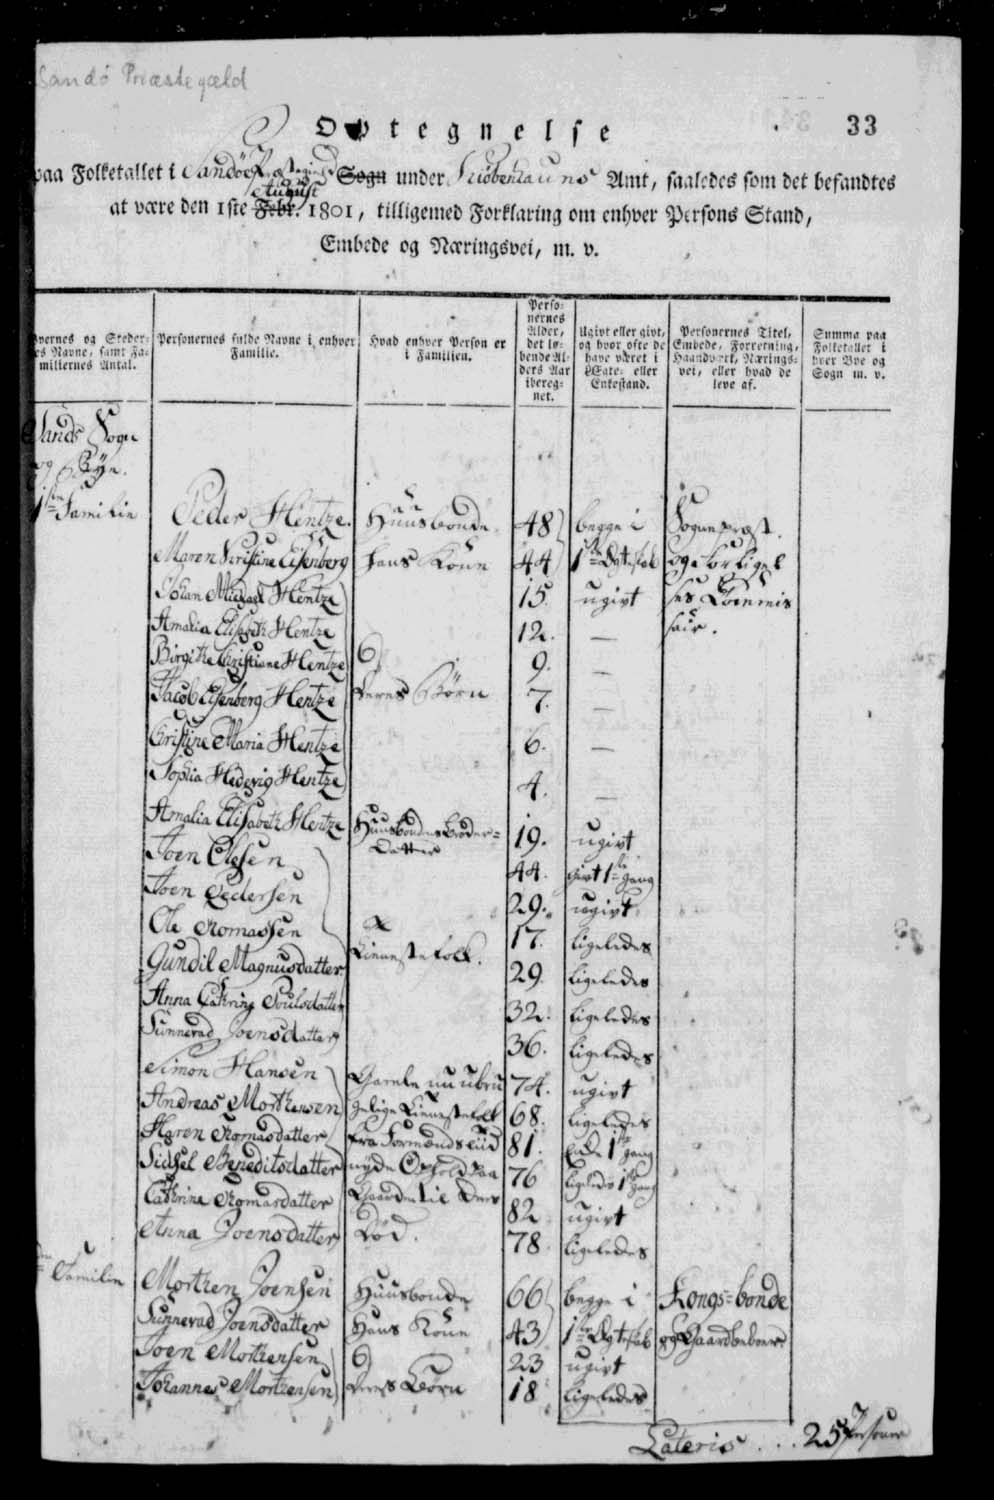 Sandö Præstegæld
Optegnelse 33
paa Folketallet i Sandöe Præstegield Sogn under Kiöbenhauns Amt, saaledes som det befandtes
August
at være den 1ste Febr. 1801, tilligemed Forklaring om enhver Persons Stand,
Embede og Næringsvei, m. v.
Byernes og Steder-
es Navne, samt Fa-
miliernes Antal.
Personernes fulde Navne i enhver
Familie.
Hvad enhver Person er
i Familien.
Perso-
nernes
Alder,
det lø-
bende Al-
ders Aar
ibereg-
net.
Ugivt eller givt,
og hvor ofte de
have været i
Egte- eller
Enkestand.
Personernes Titel,
Embede, Forretning,
Haandverk, Nærings-
vei, eller hvad de
leve af.
Summa paa
Folketallet i
hver Bye og
Sogn m. v.
Sands Sogn
og Bÿe.
1ste Familie Peder Hentze. Huusbonde. 48 begge i Sognepræst.
Maren Kirstine Eisenberg hans Kone 44 1ste Egteskab og Forligel
Johan Michael Hentze 15. ugivt ses Commis
Amalia Elisabeth Hentze 12. — sair.
Birgithe Christiane Hentze 6 9. —
Jacob Eisenberg Hentze deres Börn 7. —
Christine Maria Hentze 6. —
Sophia Hedevig Hentze 4. —
Amalia Elisabeth Hentze Huusbondes broder-
Datter 19. ugivt
Joen Olesen 44. givt 1ste gang
Joen Pedersen 29. ugivt.
Ole Thomassen 17. ligeledes
Gundil Magnusdatter Tienestefolk. 29. ligeledes
Anna Cathrine Poulsdatter 32. ligeledes
Sunnevad Joensdatter 36. ligeledes
Simon Hansen Gamle nu ubru 74. ugivt
Andreas Morthensen gelige Tienestefolk 68. ligeledes
Maren Thomasdatter fra Formands tiid 81. Enke 1ste gang
Sidsel Beneditsdatter nyde Ophold paa 76 ligeledes 1ste gang
Cathrine Thomasdatter Gaarden til deres 82 ugivt
Anna Joensdatter Död. 78 ligeledes
Familie Morthen Joensen Huusbonde 66 begge i Kongs-bonde
Sunnevad Joensdatter Hans Kone 43 1ste Egteskab og Gaardbeboer
Joen Mothensen 23 ugivt
Johannes Morthensen deres Börn 18 ligeledes
Lateris . . . 25 Personer